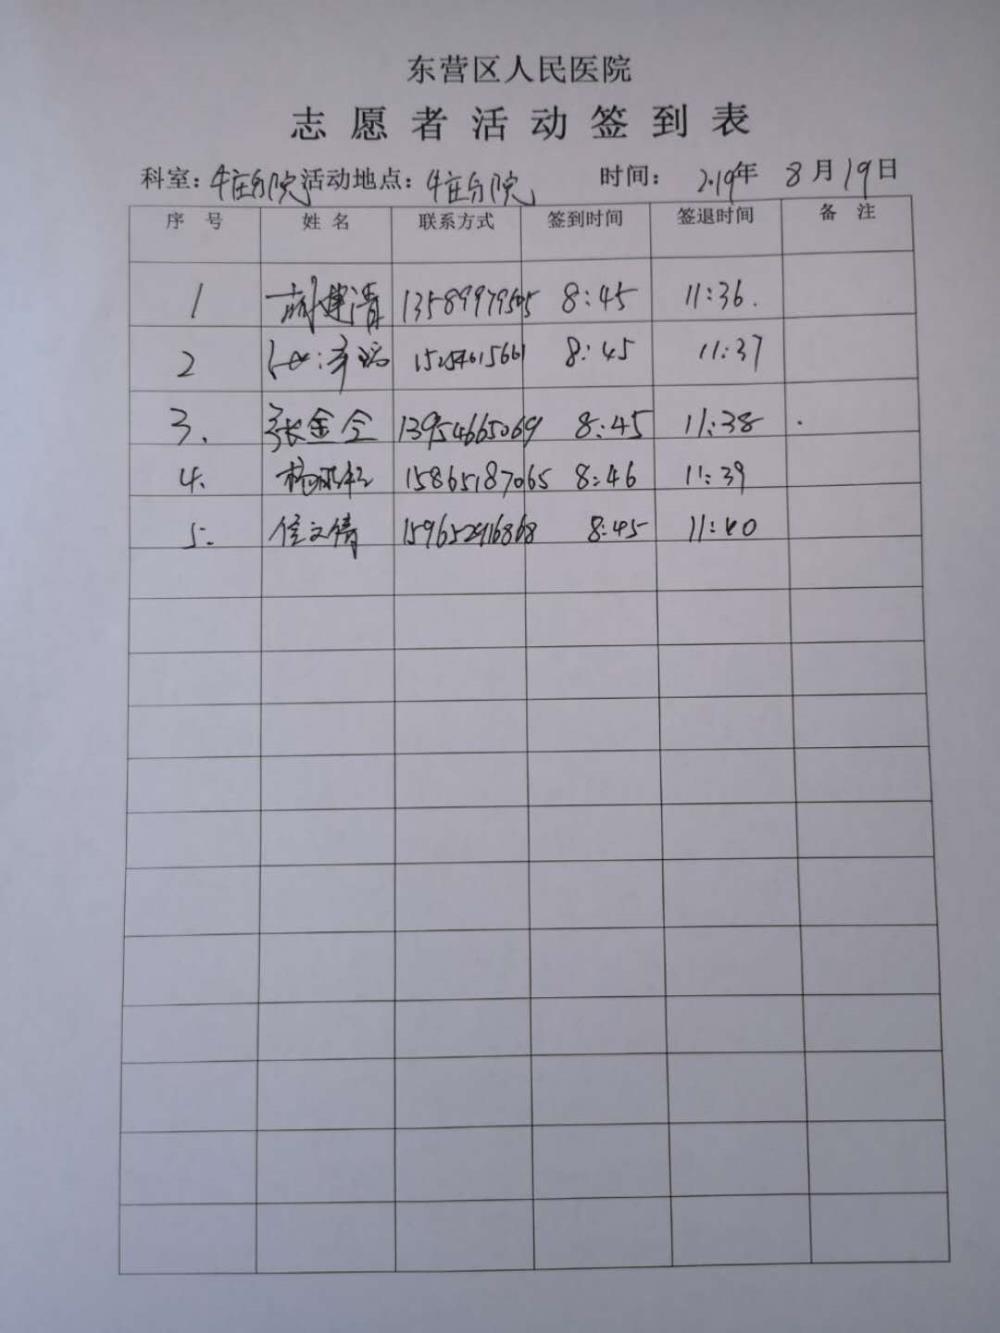 东营区人民医院
志愿者活动签到表
科室：牛庄分院 活动地点：牛庄分院 时间： 2019年 8月19日
序 号 姓 名 联系方式 签到时间 签退时间 备 注
1 建清 8:45 11:36.
2 8:45 11:37
3. 张金令 13954665069 8:45 11:38
4. 15865187065 8:46 11:39
5. 文倩 8:45 11:40